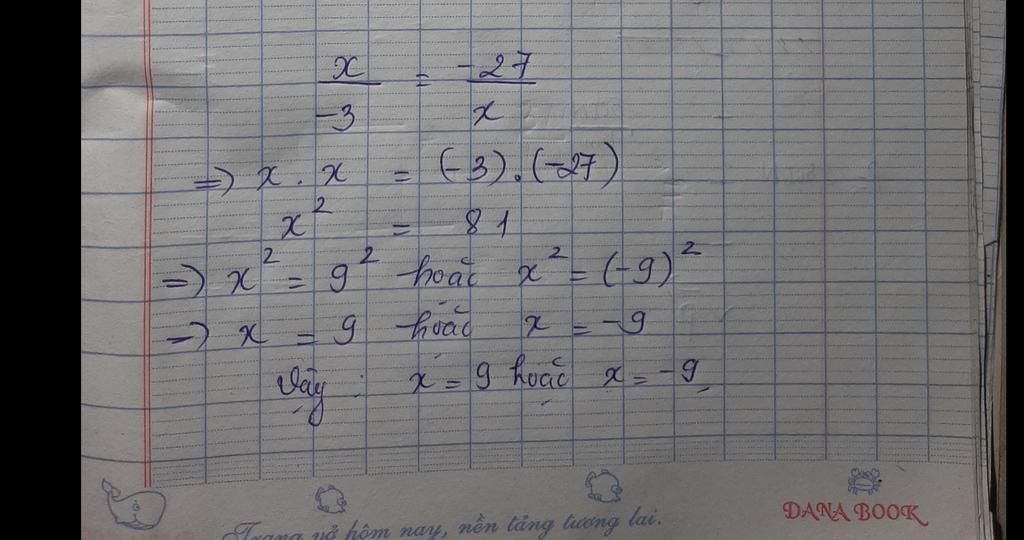 x/-3 = -27/x
=> x . x = (-3).(-27)
x² = 81
=> x² = 9² hoặc x² = (-9)²
=> x = 9 hoặc x = -9
Vậy : x = 9 hoặc x = -9
DANA BOOK
Trang vở hôm nay, nền tảng tương lai.